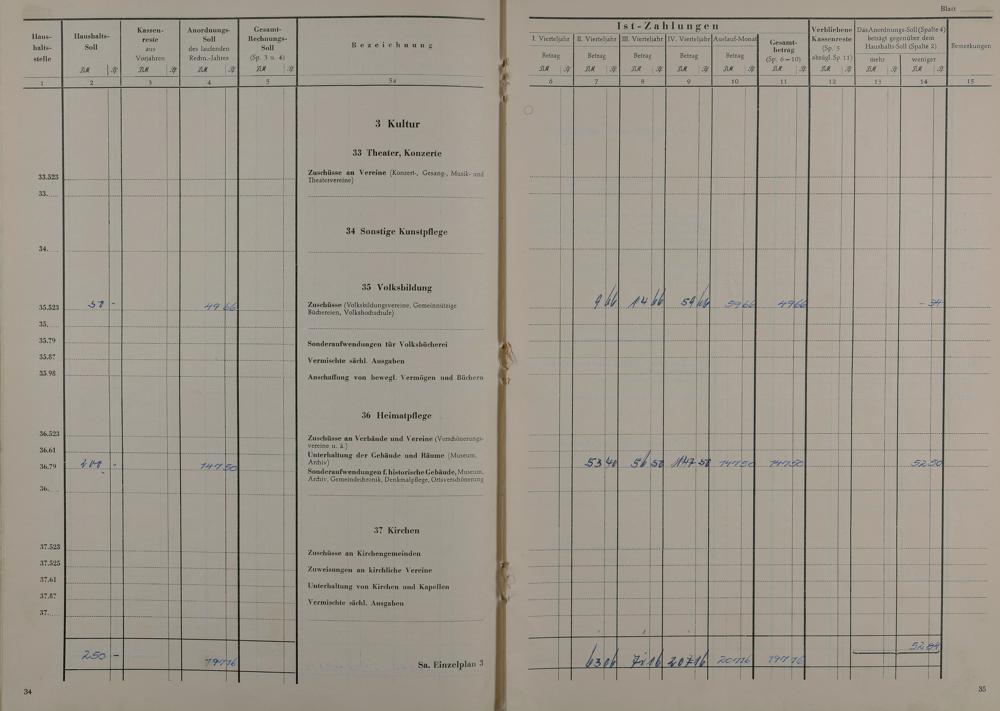 Blatt
Haus-
halts-
stelle
Haushalts-
Soll
Kassen-
reste
aus
Vorjahren
Anordnungs-
Soll
des laufenden
Rechn.-Jahres
Gesamt-
Rechnungs-
Soll
(Sp. 3 u. 4)
Bezeichnung
1 2 3 4 5 5a
3 Kultur
33 Theater, Konzerte
33.523 Zuschüsse an Vereine (Konzert-, Gesang-, Musik- und
Theatervereine)
33.
34 Sonstige Kunstpflege
34.
35 Volksbildung
35.523 49 66 Zuschüsse (Volksbildungsvereine, Gemeinnützige
Büchereien, Volkshochschule)
35.
35.79 Sonderaufwendungen für Volksbücherei
35.87 Vermischte sächl. Ausgaben
35.98 Anschaffung von bewegl. Vermögen und Büchern
36 Heimatpflege
36.523 Zuschüsse an Verbände und Vereine (Verschönerungs-
vereine u. ä.)
36.61 Unterhaltung der Gebäude und Räume (Museum,
Archiv)
36.79 147 50 Sonderaufwendungen f. historische Gebäude, Museum,
Archiv, Gemeindechronik, Denkmalpflege, Ortsverschönerung
36.
37 Kirchen
37.523 Zuschüsse an Kirchengemeinden
37.525 Zuweisungen an kirchliche Vereine
37.61 Unterhaltung von Kirchen und Kapellen
37.87 Vermischte sächl. Ausgaben
37.
250 - 197 16 Sa. Einzelplan 3
34
Ist-Zahlungen
I. Vierteljahr II. Vierteljahr III. Vierteljahr IV. Vierteljahr Auslauf-Monat
Betrag Betrag Betrag Betrag Betrag
Gesamt-
betrag
(Sp. 6–10)
Verbliebene
Kassenreste
(Sp. 5
abzügl. Sp. 11)
Das Anordnungs-Soll (Spalte 4)
beträgt gegenüber dem
Haushalts-Soll (Spalte 2)
mehr weniger
Bemerkungen
6 7 8 9 10 11 12 13 14 15
9 66 14 66 59 66 59 66 49 66 - 34
53 40 56 50 147 50 147 50 147 50 52 50
63 06 71 16 207 16 207 16 197 16 52 84
35